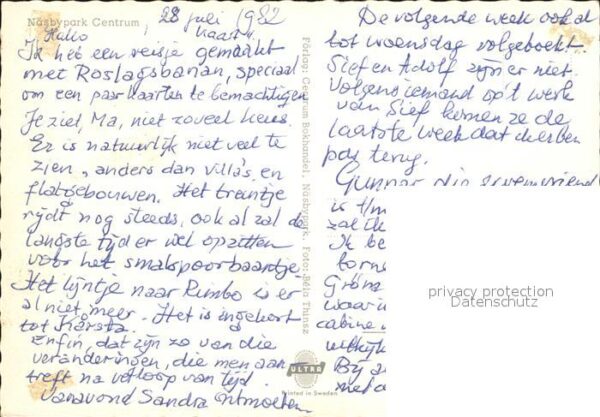 Näsbypark Centrum
28 juli 1982
Hallo
kaart
Ik heb een reisje gemaakt
met Roslagsbanan, speciaal
om een paar kaarten te bemachtigen
Je ziet, Ma, niet zoveel keus.
Er is natuurlijk niet veel te
zien, anders dan villa's en
flatgebouwen. Het treintje
rijdt nog steeds, ook al zal de
langste tijd er wel opzitten
voor het smalspoorbaantje.
Het lijntje naar Rimbo is er
al niet meer. Het is ingekort
tot Kårsta.
Enfin, dat zijn zo van die
veranderingen, die men aan
treft na verloop van tijd.
Vanavond Sandra ontmoeten
Förlag: Centrum Bokhandel, Näsbypark. Foto: Béla Thinsz
ULTRA
Printed in Sweden
De volgende week ook al
tot woensdag volgeboekt.
Sief en Adolf zijn er niet.
Volgens iemand op 't werk
van Sief komen ze de
laatste week dat ik er ben
pas terug.
Gunnar
is t/m
zal ik
Ik be
torne
Gröna
waar
cabine
uitkijk
Bij
met
privacy protection
Datenschutz